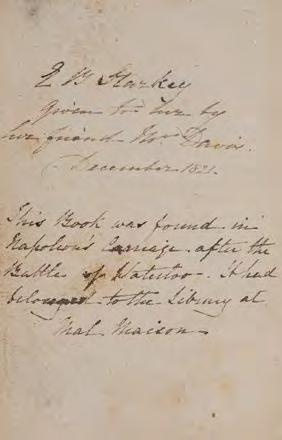 E B Starkey
Given to her by
her friend Mrs Davis.
December 1821.
This Book was found in
Napoleon's Carriage after the
Battle of Waterloo - it had
belonged to the Library at
Mal Maison -